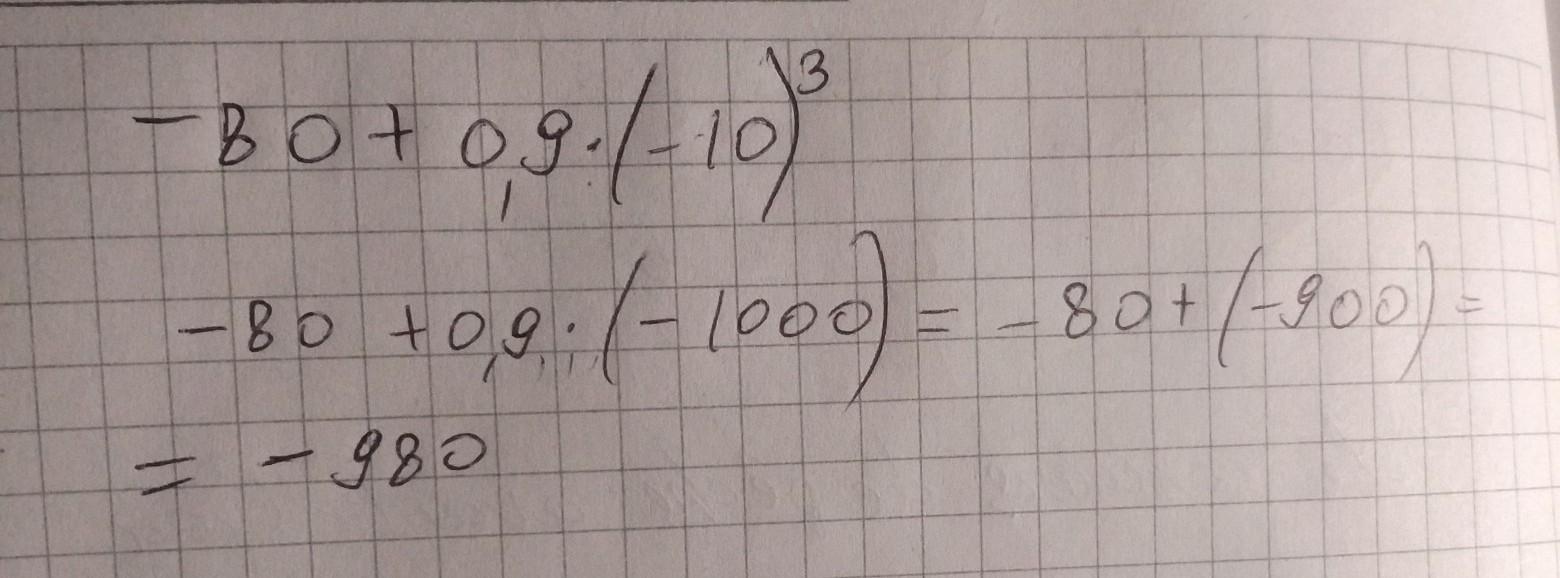 -80 + 0,9 · (-10)³
-80 + 0,9 · (-1000) = -80 + (-900) =
= -980